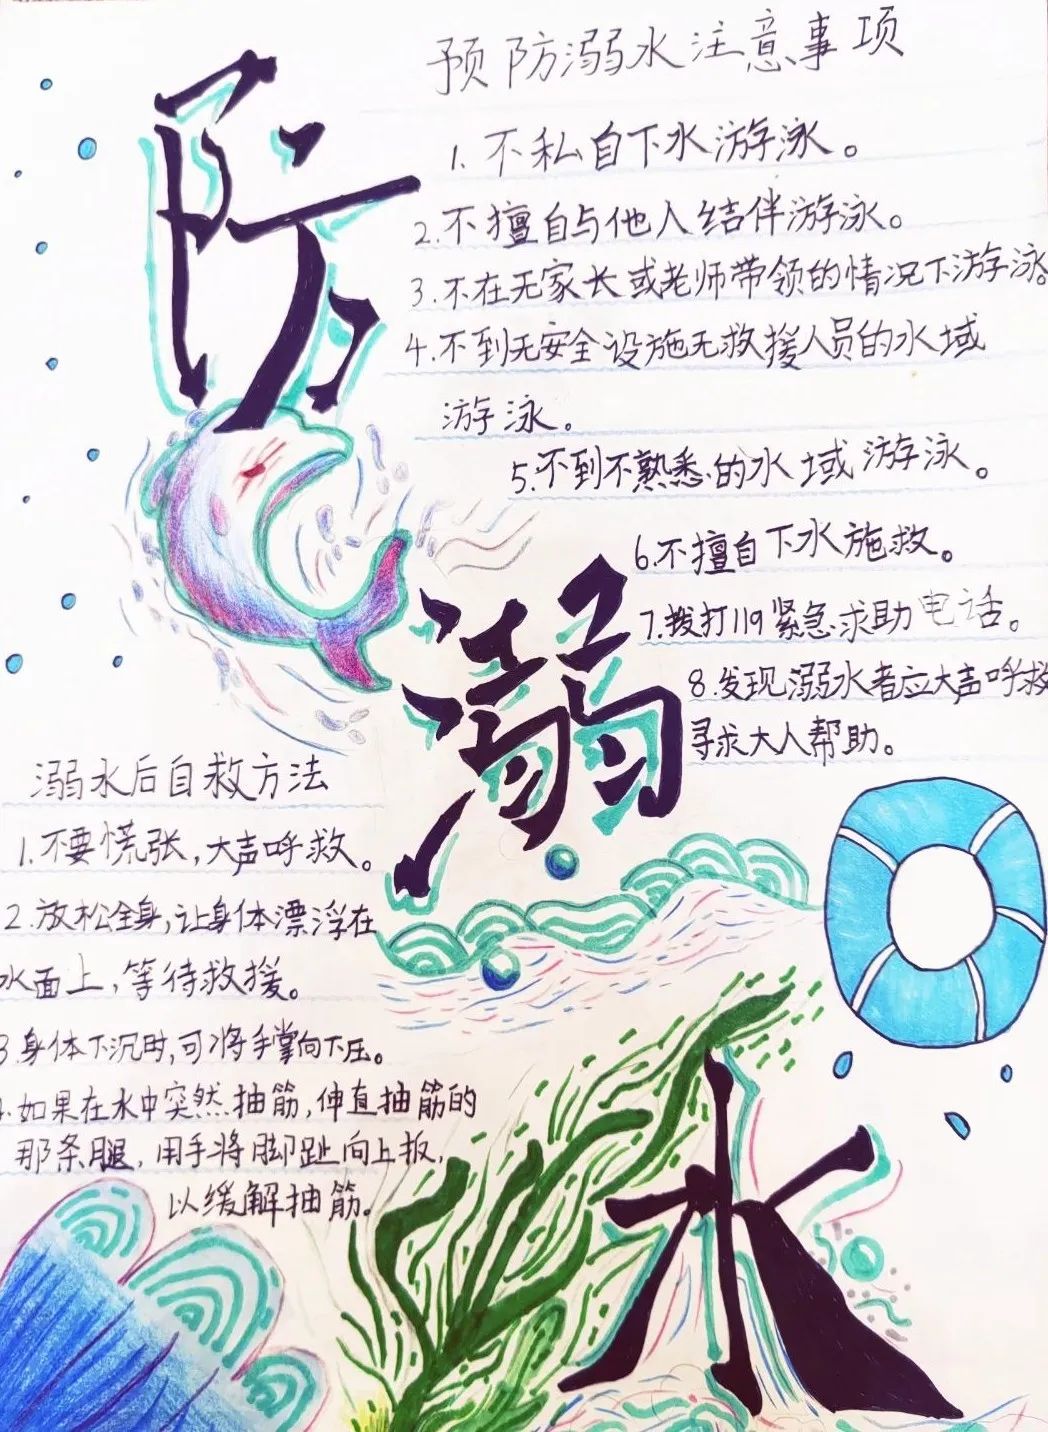 防
溺
水
预防溺水注意事项
1.不私自下水游泳。
2.不擅自与他人结伴游泳。
3.不在无家长或老师带领的情况下游泳。
4.不到无安全设施无救援人员的水域
游泳。
5.不到不熟悉的水域游泳。
6.不擅自下水施救。
7.拨打119紧急求助电话。
8.发现溺水者应大声呼救
寻求大人帮助。
溺水后自救方法
1.不要慌张,大声呼救。
2.放松全身,让身体漂浮在
水面上,等待救援。
3.身体下沉时,可将手掌向下压。
4.如果在水中突然抽筋,伸直抽筋的
那条腿,用手将脚趾向上扳,
以缓解抽筋。